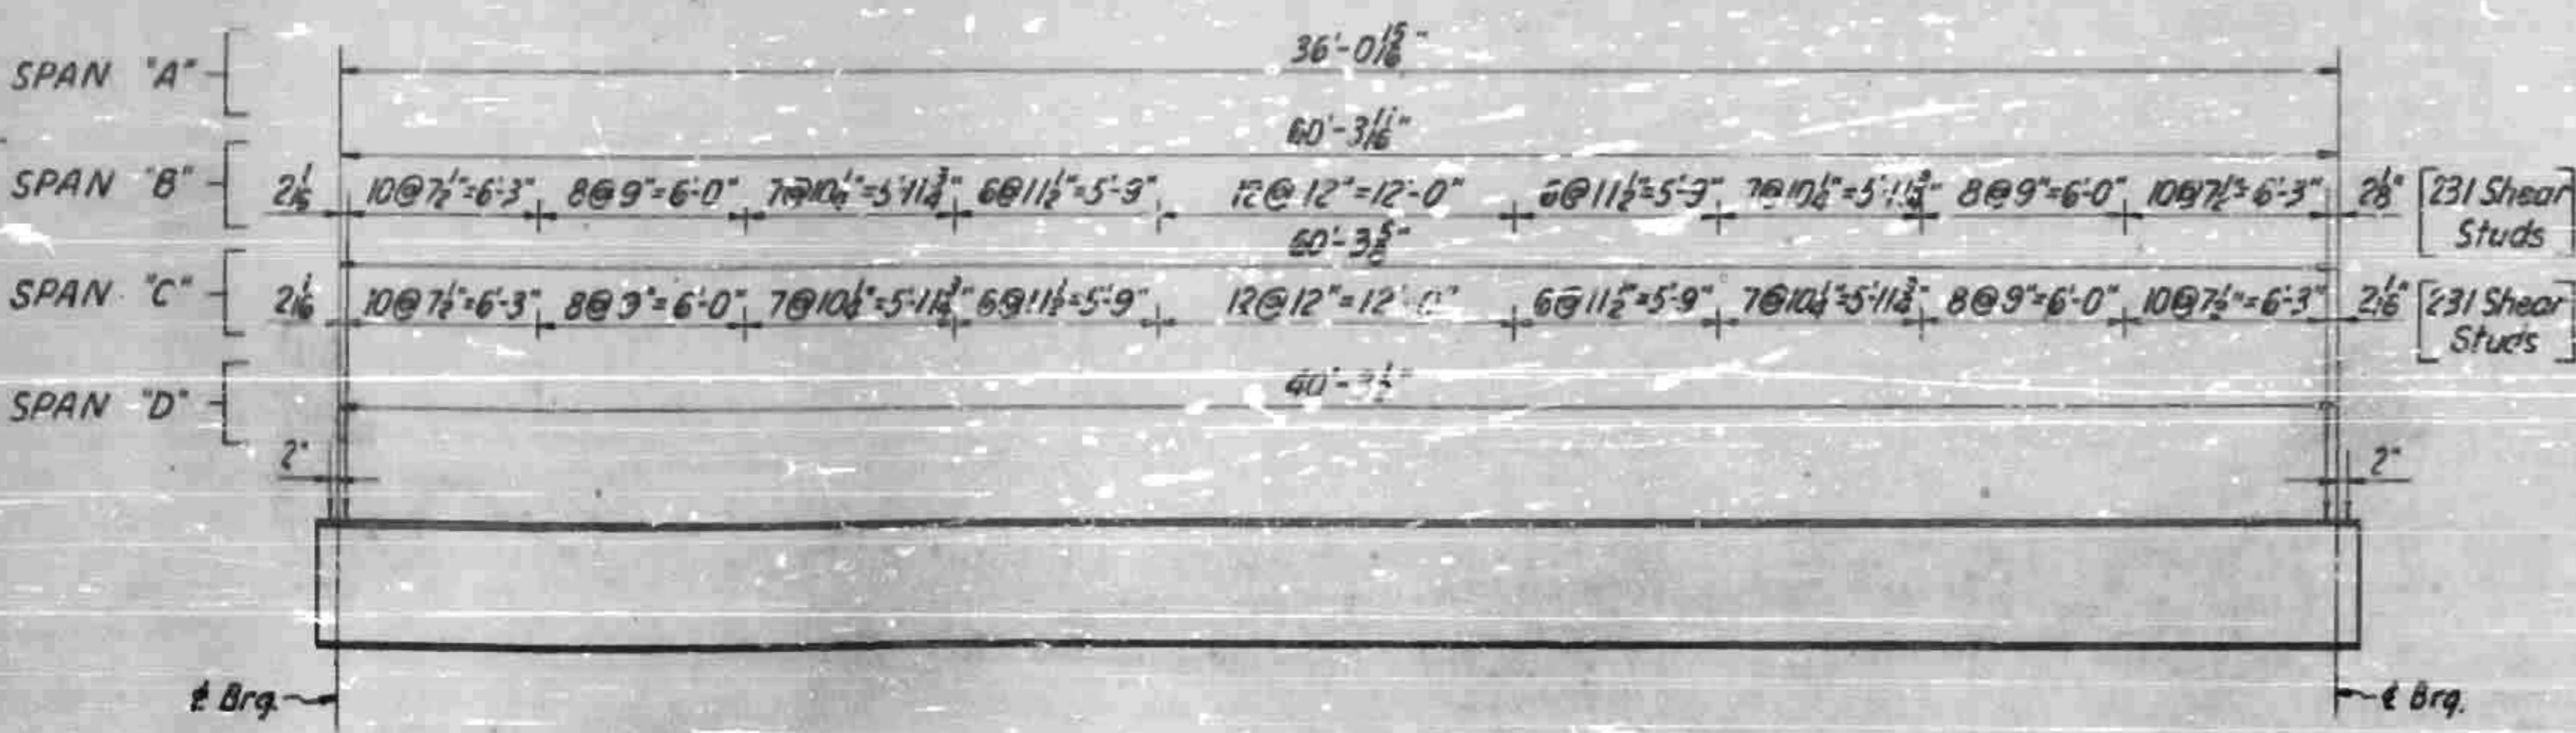 SPAN "A"
36'-0 15/16"
60'-3 11/16"
SPAN "B"
2 1/16" 10@7 1/2"=6'-3" 8@9"=6'-0" 7@10 1/4"=5'-11 3/4" 6@11 1/2"=5'-9" 12@12"=12'-0" 6@11 1/2"=5'-9" 7@10 1/4"=5'-11 3/4" 8@9"=6'-0" 10@7 1/2"=6'-3" 2 1/8" [231 Shear
Studs]
60'-3 5/8"
SPAN "C"
2 1/16" 10@7 1/2"=6'-3" 8@9"=6'-0" 7@10 1/4"=5'-11 3/4" 6@11 1/2"=5'-9" 12@12"=12'-0" 6@11 1/2"=5'-9" 7@10 1/4"=5'-11 3/4" 8@9"=6'-0" 10@7 1/2"=6'-3" 2 1/16" [231 Shear
Studs]
40'-3 1/2"
SPAN "D"
2" 2"
℄ Brg. ℄ Brg.